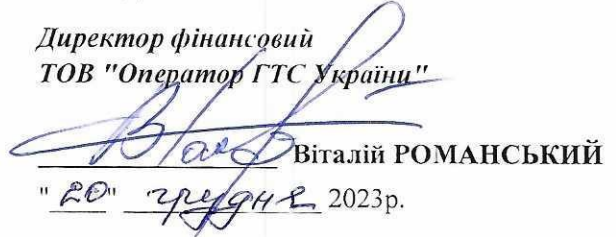 Директор фінансовий
ТОВ "Оператор ГТС України"
Віталій РОМАНСЬКИЙ
"20" грудня 2023р.